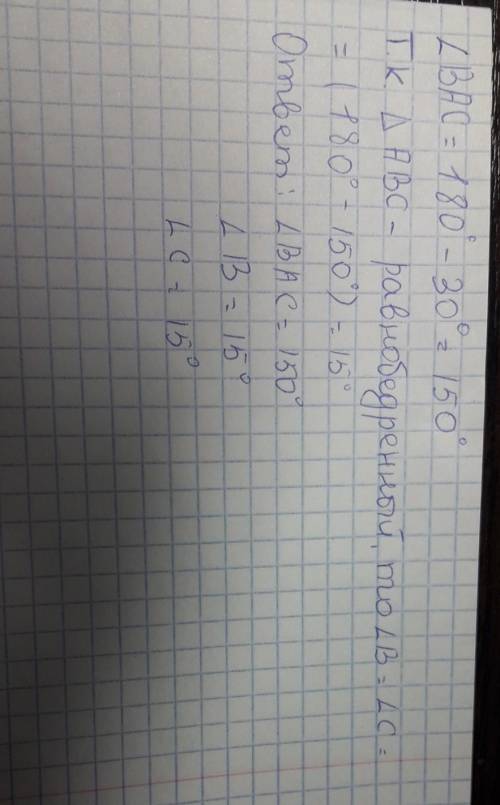 ∠BAC = 180° - 30° = 150°
Т.к △ABC - равнобедренный, то ∠B = ∠C =
= (180° - 150°) = 15°
Ответ: ∠BAC = 150°
∠B = 15°
∠C = 15°